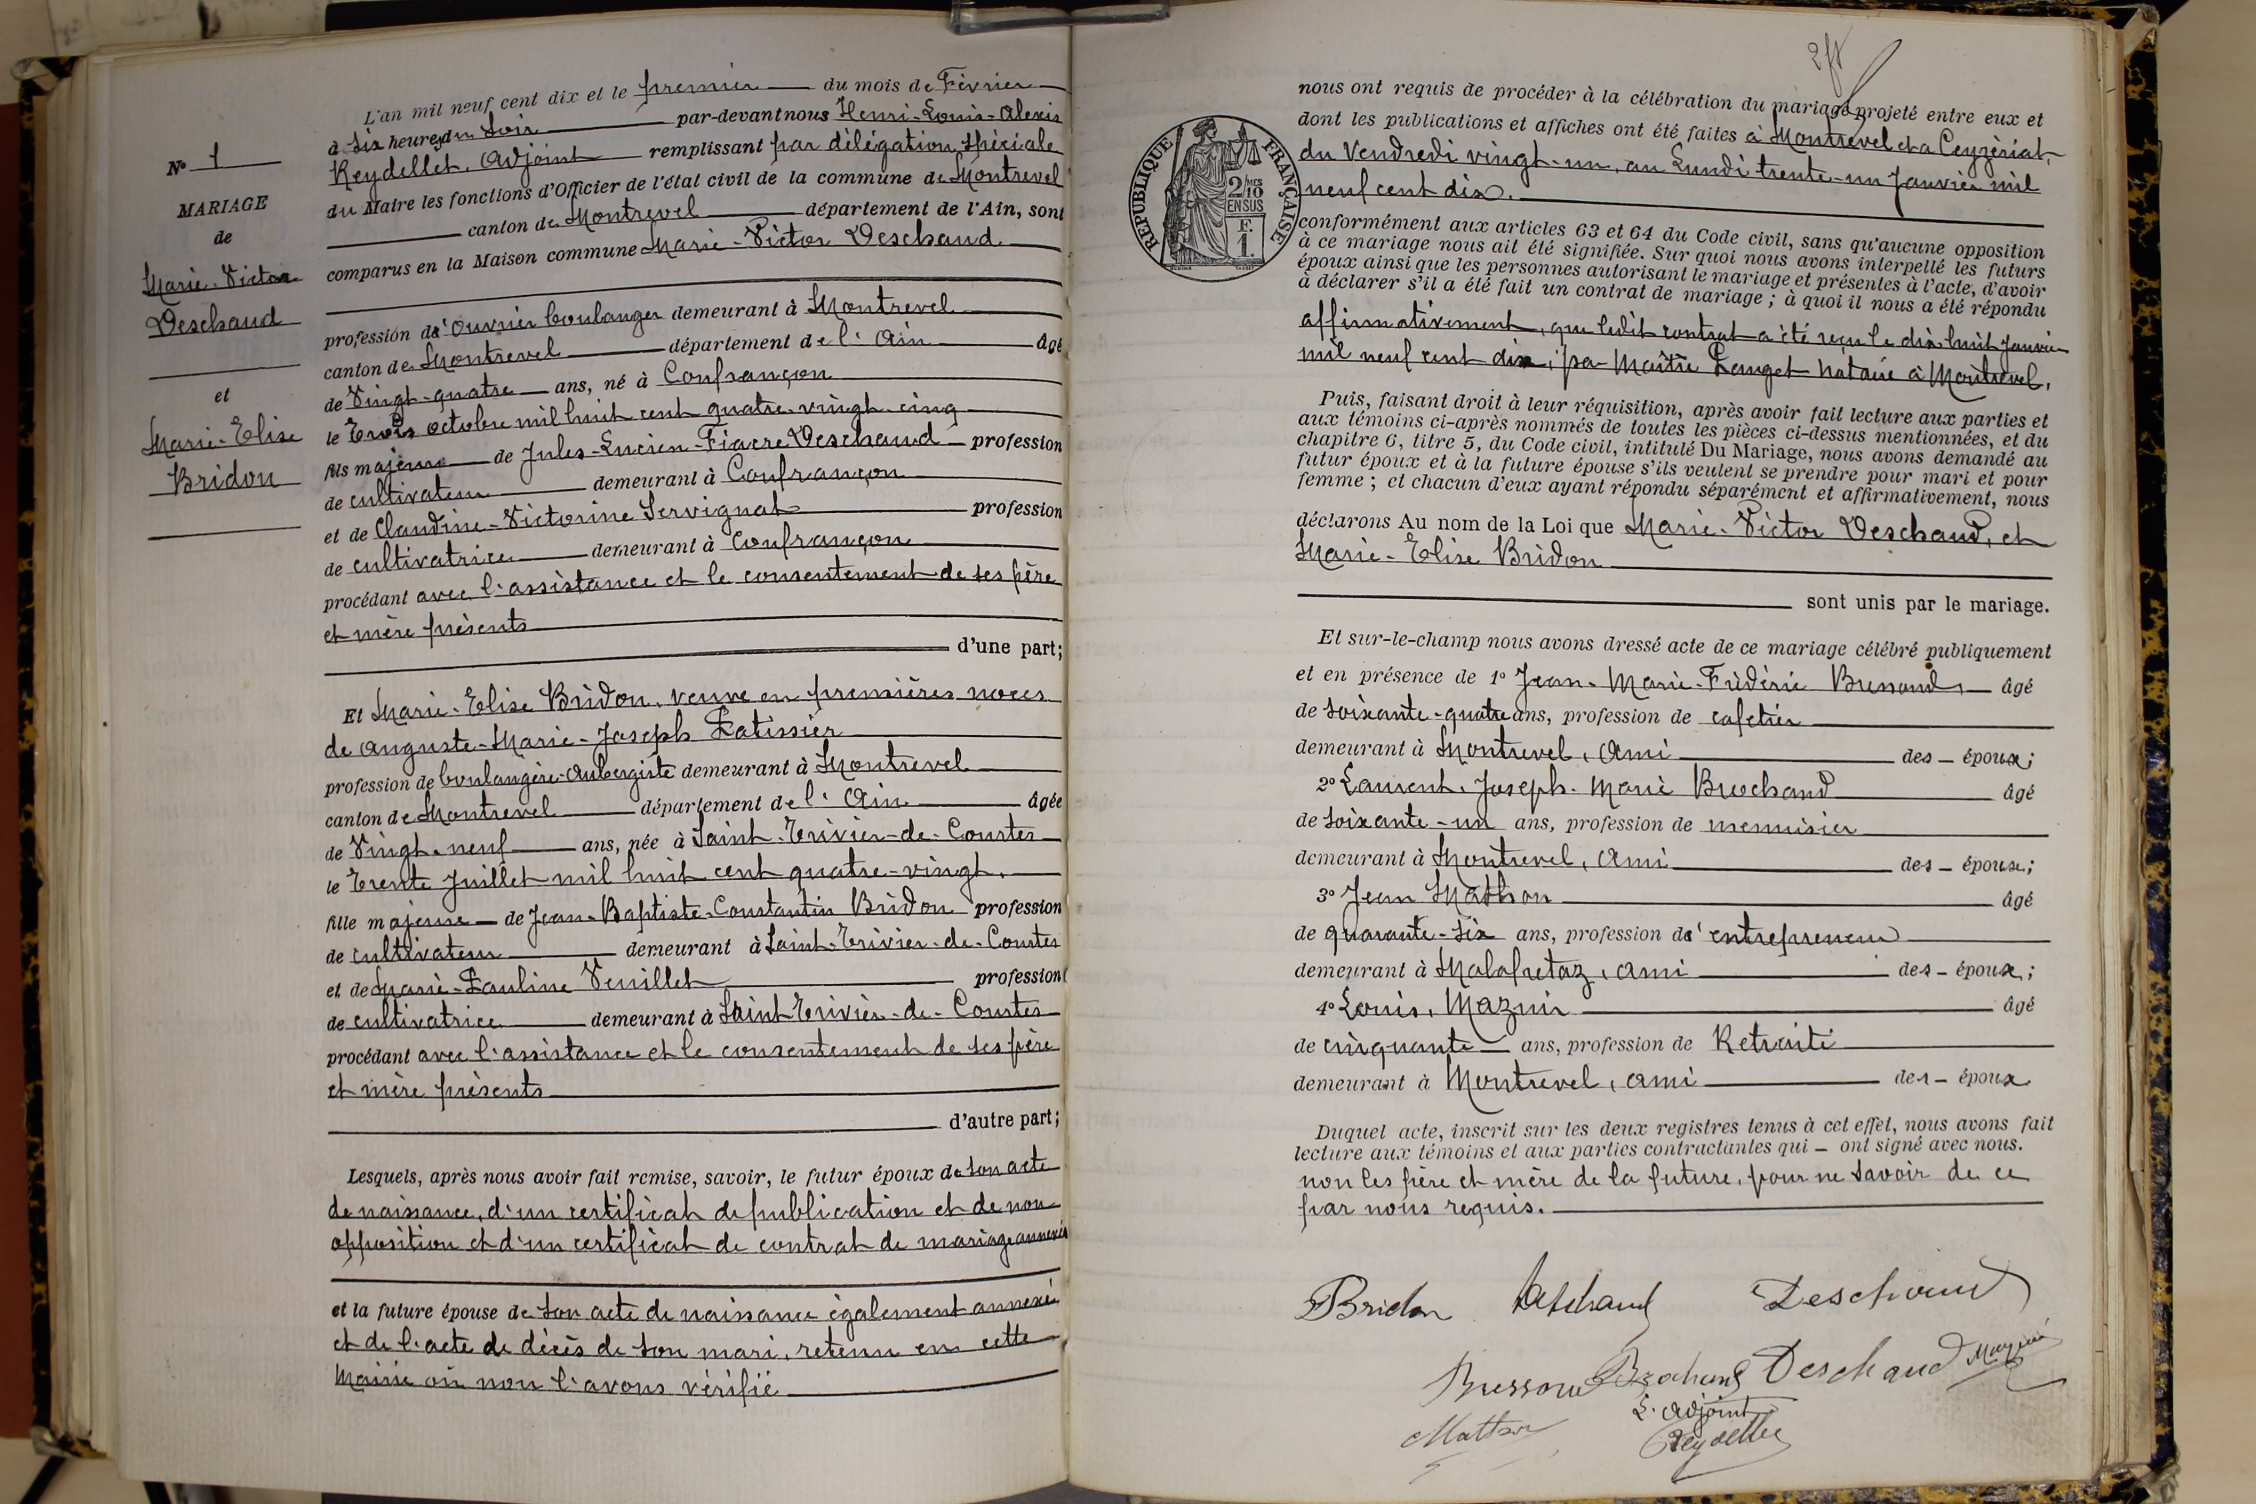 L'an mil neuf cent dix et le premier du mois de Février
à six heures du soir par-devant nous Henri-Louis-Alexis
Reydellet, Adjoint remplissant par délégation spéciale
du Maire les fonctions d'Officier de l'état civil de la commune de Montrevel
canton de Montrevel département de l'Ain, sont
comparus en la Maison commune Marie-Victor Deschaud
profession d'ouvrier boulanger demeurant à Montrevel
canton de Montrevel département de l'Ain âgé
de Vingt-quatre ans, né à Confrançon
le Trois octobre mil huit cent quatre-vingt-cinq
fils majeur de Jules-Lucien-Fiacre Deschaud profession
de cultivateur demeurant à Confrançon
et de Claudine-Victorine Servignat profession
de cultivatrice demeurant à Confrançon
procédant avec l'assistance et le consentement de ses père
et mère présents
d'une part;
Et Marie-Elise Bridon, veuve en premières noces
de Auguste-Marie-Joseph Patissier
profession de boulangère-Aubergiste demeurant à Montrevel
canton de Montrevel département de l'Ain âgée
de Vingt-neuf ans, née à Saint-Trivier-de-Courtes
le Trente Juillet mil huit cent quatre-vingt,
fille majeure de Jean-Baptiste-Constantin Bridon profession
de cultivateur demeurant à Saint-Trivier-de-Courtes
et de Marie-Pauline Veuillet profession
de cultivatrice demeurant à Saint-Trivier-de-Courtes
procédant avec l'assistance et le consentement de ses père
et mère présents
d'autre part;
Lesquels, après nous avoir fait remise, savoir, le futur époux de son acte
de naissance, d'un certificat de publication et de non
opposition et d'un certificat de contrat de mariage annexés
et la future épouse de son acte de naissance également annexé
et de l'acte de décès de son mari, retenu en cette
Mairie où non l'avons vérifié
No 1
MARIAGE
de
Marie-Victor
Deschaud
et
Marie-Elise
Bridon
nous ont requis de procéder à la célébration du mariage projeté entre eux et
dont les publications et affiches ont été faites à Montrevel et à Ceyzériat,
du Vendredi vingt-un, au Lundi trente-un Janvier mil
neuf cent dix.
RÉPUBLIQUE FRANÇAISE
2/10MES
EN SUS
F.
1.
conformément aux articles 63 et 64 du Code civil, sans qu'aucune opposition
à ce mariage nous ait été signifiée. Sur quoi nous avons interpellé les futurs
époux ainsi que les personnes autorisant le mariage et présentes à l'acte, d'avoir
à déclarer s'il a été fait un contrat de mariage ; à quoi il nous a été répondu
affirmativement, que ledit contrat a été reçu le dix-huit Janvier
mil neuf cent dix, par Maître Panget Notaire à Montrevel,
Puis, faisant droit à leur réquisition, après avoir fait lecture aux parties et
aux témoins ci-après nommés de toutes les pièces ci-dessus mentionnées, et du
chapitre 6, titre 5, du Code civil, intitulé Du Mariage, nous avons demandé au
futur époux et à la future épouse s'ils veulent se prendre pour mari et pour
femme ; et chacun d'eux ayant répondu séparément et affirmativement, nous
déclarons Au nom de la Loi que Marie-Victor Deschaud, et
Marie-Elise Bridon
sont unis par le mariage.
Et sur-le-champ nous avons dressé acte de ce mariage célébré publiquement
et en présence de 1o Jean-Marie-Frédéric âgé
de soixante-quatre ans, profession de cafetier
demeurant à Montrevel, ami des époux;
2o Laurent-Joseph-Marie Brochand âgé
de soixante-un ans, profession de menuisier
demeurant à Montrevel, ami des époux;
3o Jean Mathon âgé
de quarante-six ans, profession d'entrepreneur
demeurant à Malafretaz, ami des époux;
4o Louis, Mazuir âgé
de cinquante ans, profession de Retraité
demeurant à Montrevel, ami des époux
Duquel acte, inscrit sur les deux registres tenus à cet effet, nous avons fait
lecture aux témoins et aux parties contractantes qui ont signé avec nous.
non les père et mère de la future, pour ne savoir de ce
par nous requis.
Bridon Deschaud Deschaud
Brochand Deschaud Mazuir
L'adjoint
Mathon Reydellet